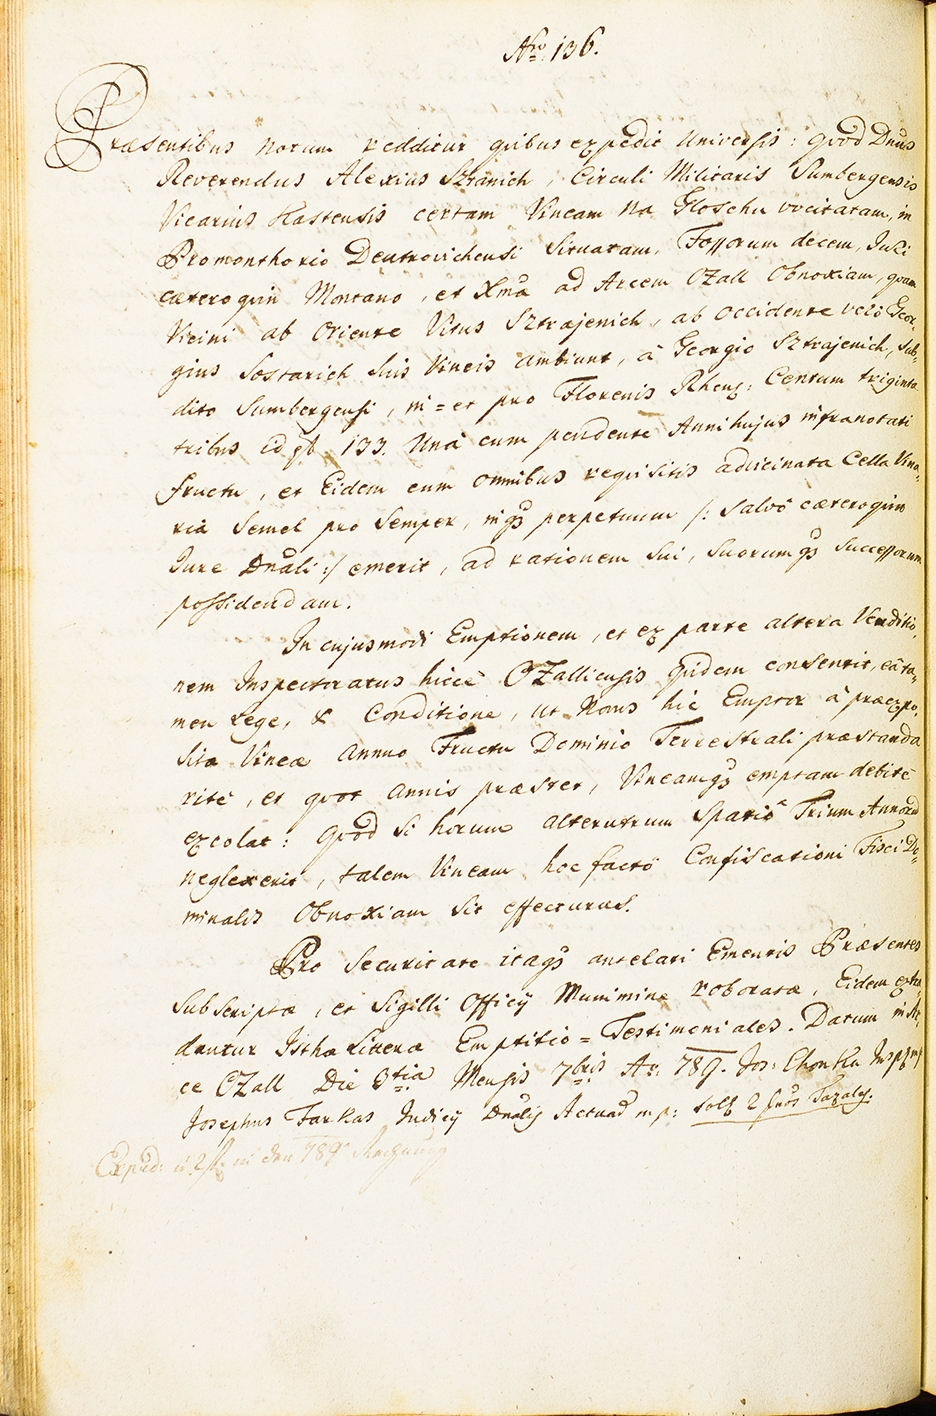 Nro. 136.
Præsentibus notum redditur quibus expedit Universis: quod Dnus
Reverendus Alexius Sztanich, Circuli Militaris Sumbergensis
Vicarius Hastensis certam Vineam Na Gloschu vocitatam, in
Promonthorio Deutrovichensi Situatam, Fossorum decem, Juri
cæteroquin Montano, et Xma ad Arcem OZall Obnoxiam, quam
Vicini ab Oriente Vitus Sztrajenich, ab occidente verò Geor,,
gius Sostarich suis Vineis ambiunt, à Georgio Sztrajenich, Sub,,
dito Sumbergensi, in = et pro Florenis Rheng: Centum triginta
tribus id est 133. Unà cum pendente Anni hujus infranotati
fructu, et Eidem cum omnibus requisitis advicinata Cella Vina,,
ria Semel pro Semper, inqs perpetuum /: Salvô cæteroquin
Jure Dnali :/ emerit, ad rationem sui, Suorumqs Successorum
possidendam.
In cujusmodi Emptionem, et ex parte altera Venditio,,
nem Inspectoratus hicce OZalliensis quidem consentit, eâ ta,,
men lege, & Conditione, ut Novus hic Emptor à præexpo,,
sita Vinea Annuo Fructu Dominio Terrestrali præstanda
ritè, et quot annis præstet, Vineamqs emptam debitè
excolat: quod si horum alterutrum Spatiô Trium Annorum
neglexerit, talem Vineam hoc factô Confiscationi Fisci Do,,
minalis Obnoxiam sit effecturus.
Pro Securitate itaqs antelati Ementis Præsentes
Subscriptæ, et Sigilli Officij Munimine roboratæ, Eidem extra,,
dantur Isthæ Literæ Emptitio = Testimoniales. Datum in Ar,,
ce OZall Die 3tia Mensis 7bris Ao. 789. Jos: Chonka Insp mp
Josephus Farkas Judicij Dnalis Actuar mp: solt 2 fnos Taxales.
Exped: 2 f. in den 789